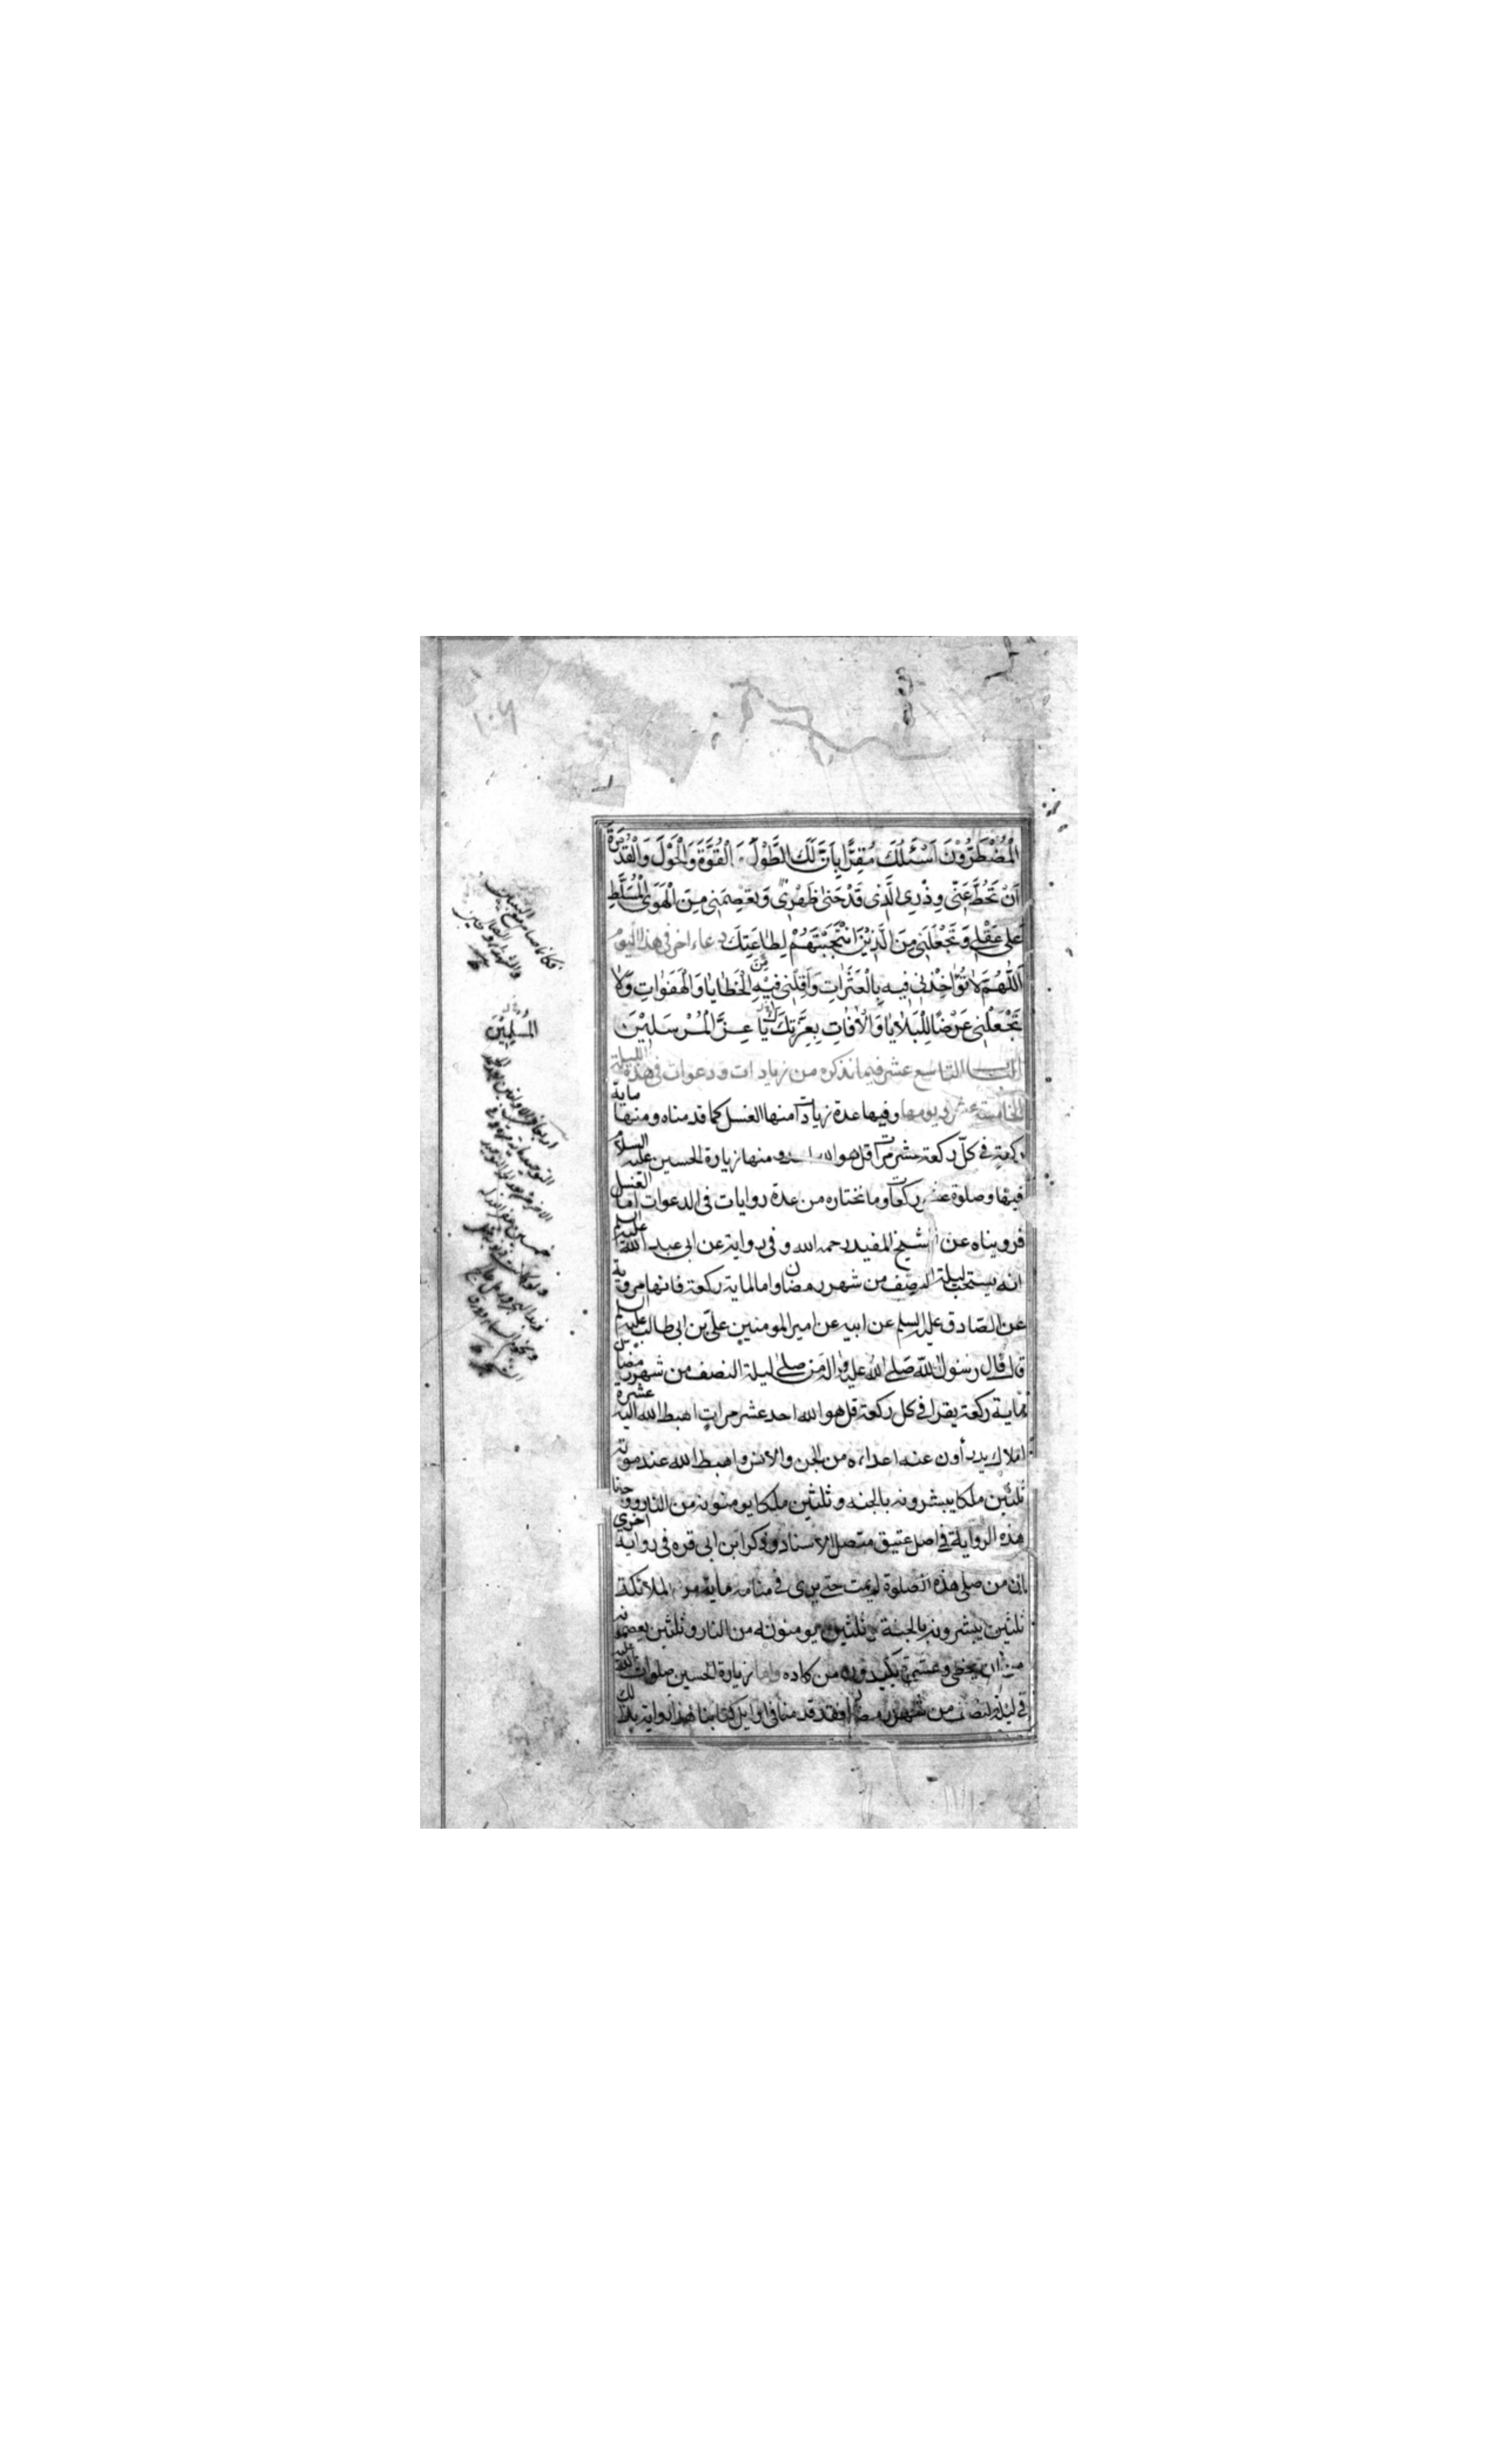 ١٠٦
الْمُضْطَرُّوْنَ اَسْئَلُكَ مُقِرًّا بِاَنَّ لَكَ الطَّوْلَ وَ الْقُوَّةَ وَالْحَوْلَ وَالْقُدْرَةَ
اَنْ تَحُطَّ عَنّى وِذْرِى الَّذِى قَدْ حَنٰى ظَهْرِىْ وَ تَعْصِمَنى مِنَ الْهَوَى الْمُسَلَّطِ
عَلٰى عَقْلى وَ تَجْعَلَنى مِنَ الَّذِيْنَ انْتَجَبْتَهُمْ لِطٰاعَتِكَ دعاء اخر فى هذا اليوم
اَللّٰهُمَّ لاٰ تُؤٰاخِذْنى فيهِ بِالْعَثَرٰاتِ وَ اَقِلْنى فيْهِ مِنَ الْخَطٰايٰا وَ الْهَفَوٰاتِ وَ لاٰ
تَجْعَلْنى غَرَضًا لِلْبَلاٰيٰا وَ الْاٰفاتِ بِعِزَّتِكَ يٰا عِزَّ الْمُرْسَليْنَ
الباب التاسع عشر فيما نذكره من زيادات ودعوات فى هذه الليلة
الخامسة عشر و يومها وفيها عدة زيادات منها الغسل كما قدمناه ومنها ماية
ركعة فى كلّ ركعة عشر مرات قل هو الله احد ومنها زيارة الحسين عليه السلام
فيها وصلوة عشر ركعات وما نختاره من عدة روايات فى الدعوات اما الغسل
فرويناه عن الشيخ المفيد رحمه الله و فى رواية عن ابى عبد الله عليه السلم
انه يستحب ليلة النصف من شهر رمضان واما الماية ركعة فانها مروية
عن الصّادق عليه السلم عن ابيه عن امير المومنين علىّ بن ابى طالب عليه السلم
قال قال رسول اللّه صلى اللّه عليه واله من صلى ليلة النصف من شهر رمضان
ماية ركعة يقرا فى كل ركعة قل هو الله احد عشر مراتٍ اهبط الله اليه عشرة
املاك يدرأون عنه اعداءه من الجن والانس واهبط الله عند موته
ثلثين ملكا يبشرونه بالجنه و ثلثين ملكا يومنونه من النار ووجدنا
هذه الرواية فى اصل عتيق متصل الاسناد وذكر ابن ابى قره فى رواية اخرى
ان من صلى هذه الصلوة لم يمت حتى يرى فى منامه ماية من الملائكة
ثلثين يبشرونه بالجنة و ثلثين يومنونه من النار و ثلثين يعصمونه
من ان يخطى وعشرة يكيدون من كاده واما زيارة الحسين صلوات الله عليه
فى ليلة النصف من شهر رمضان فقد قدمنا فى اوايل كتابنا هذا رواية بذلك
المُسلِميْن